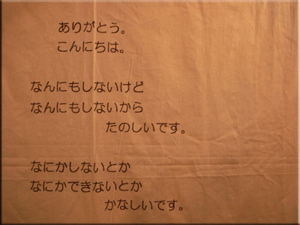 ありがとう。
こんにちは。
なんにもしないけど
なんにもしないから
たのしいです。
なにかしないとか
なにかできないとか
かなしいです。